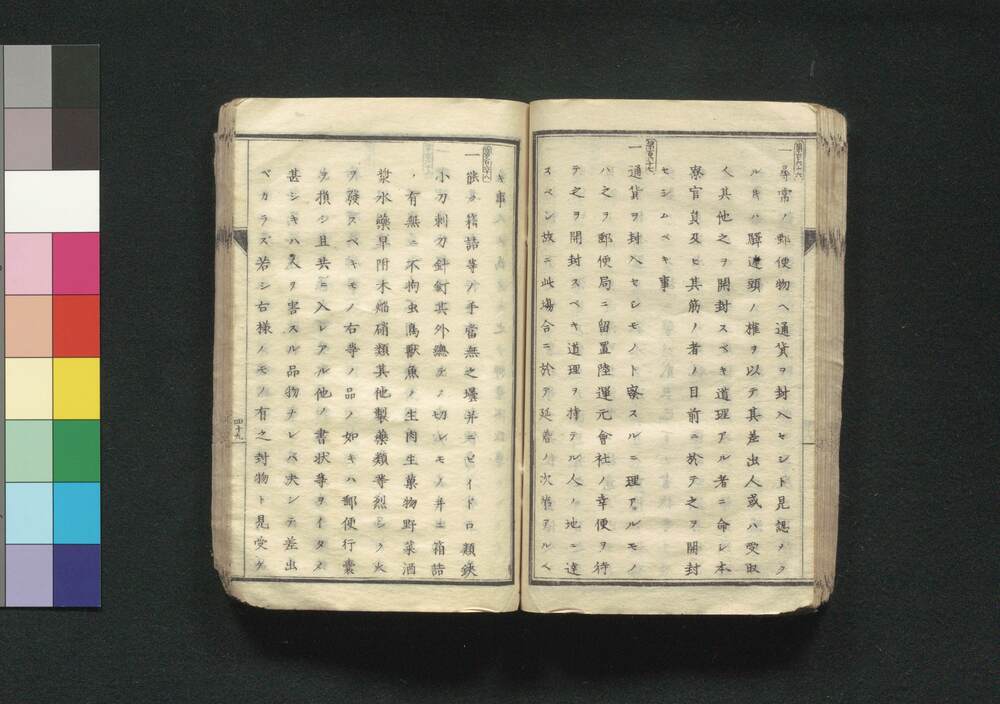 第百六十六
一尋常ノ郵便物ヘ通貨ヲ封入セシト見認メタ
ルキハ驛逓頭ノ権ヲ以テ其差出人或ハ受取
人其他之ヲ開封スベキ道理アル者ニ命シ本
寮官員及ヒ其筋ノ者ノ目前ニ於テ之ヲ開封
セシムベキ事
第百六十七
一通貨ヲ封入セシモノト察スルニ理アルモノ
ハ之ヲ郵便局ニ留置陸運元會社ノ幸便ヲ待
テ之ヲ開封スベキ道理ヲ持テル人ノ地ニ達
スベシ故ニ此場合ニ於テ延着ノ次第アルベ
キ事
第百六十八
一能ク箱詰等ノ手當無之壜并ニビイドロ類鋏
小刀刺刀針釘其外總テノ切レモノ并ニ箱詰
ノ有無ニ不拘虫鳥獣魚ノ生肉生菓物野菜酒
漿水藥早附木焔硝類其他製藥類等烈シク火
ヲ發スベキモノ右等ノ品ノ如キハ郵便行嚢
ヲ損シ且共ニ入レアル他ノ書状等ヲイタメ
甚シキハ人ヲ害スル品物ナレバ決シテ差出
ベカラズ若シ右様ノモノ有之封物ト見受ケ
四十九